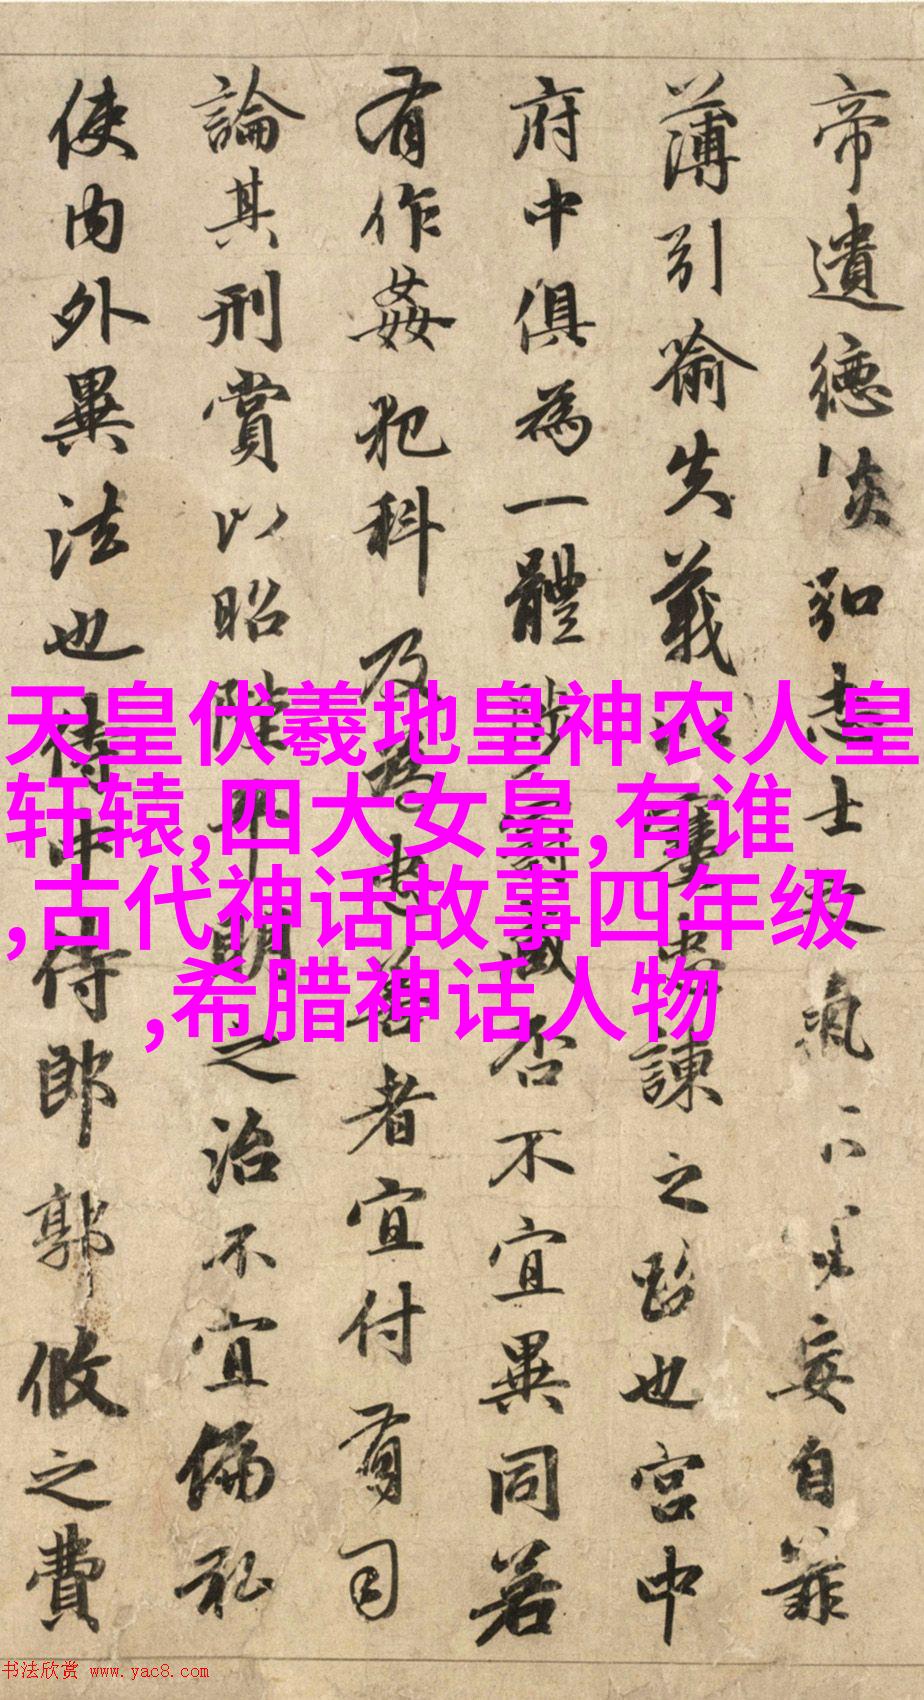 帝遺德恢弘志士之氣不宜妄自菲
薄引喻失義以塞忠諫之路也宮中
府中俱為一體陟罰臧否不宜異同若
有作姦犯科及為忠善者宜付有司
論其刑賞以昭陛下明之治不宜偏私
使内外異法也侍中侍郎郭攸之費
天皇伏羲地皇神农人皇
轩辕,四大女皇,有谁
,古代神话故事四年级
,希腊神话人物
书法欣赏 www.yac8.com